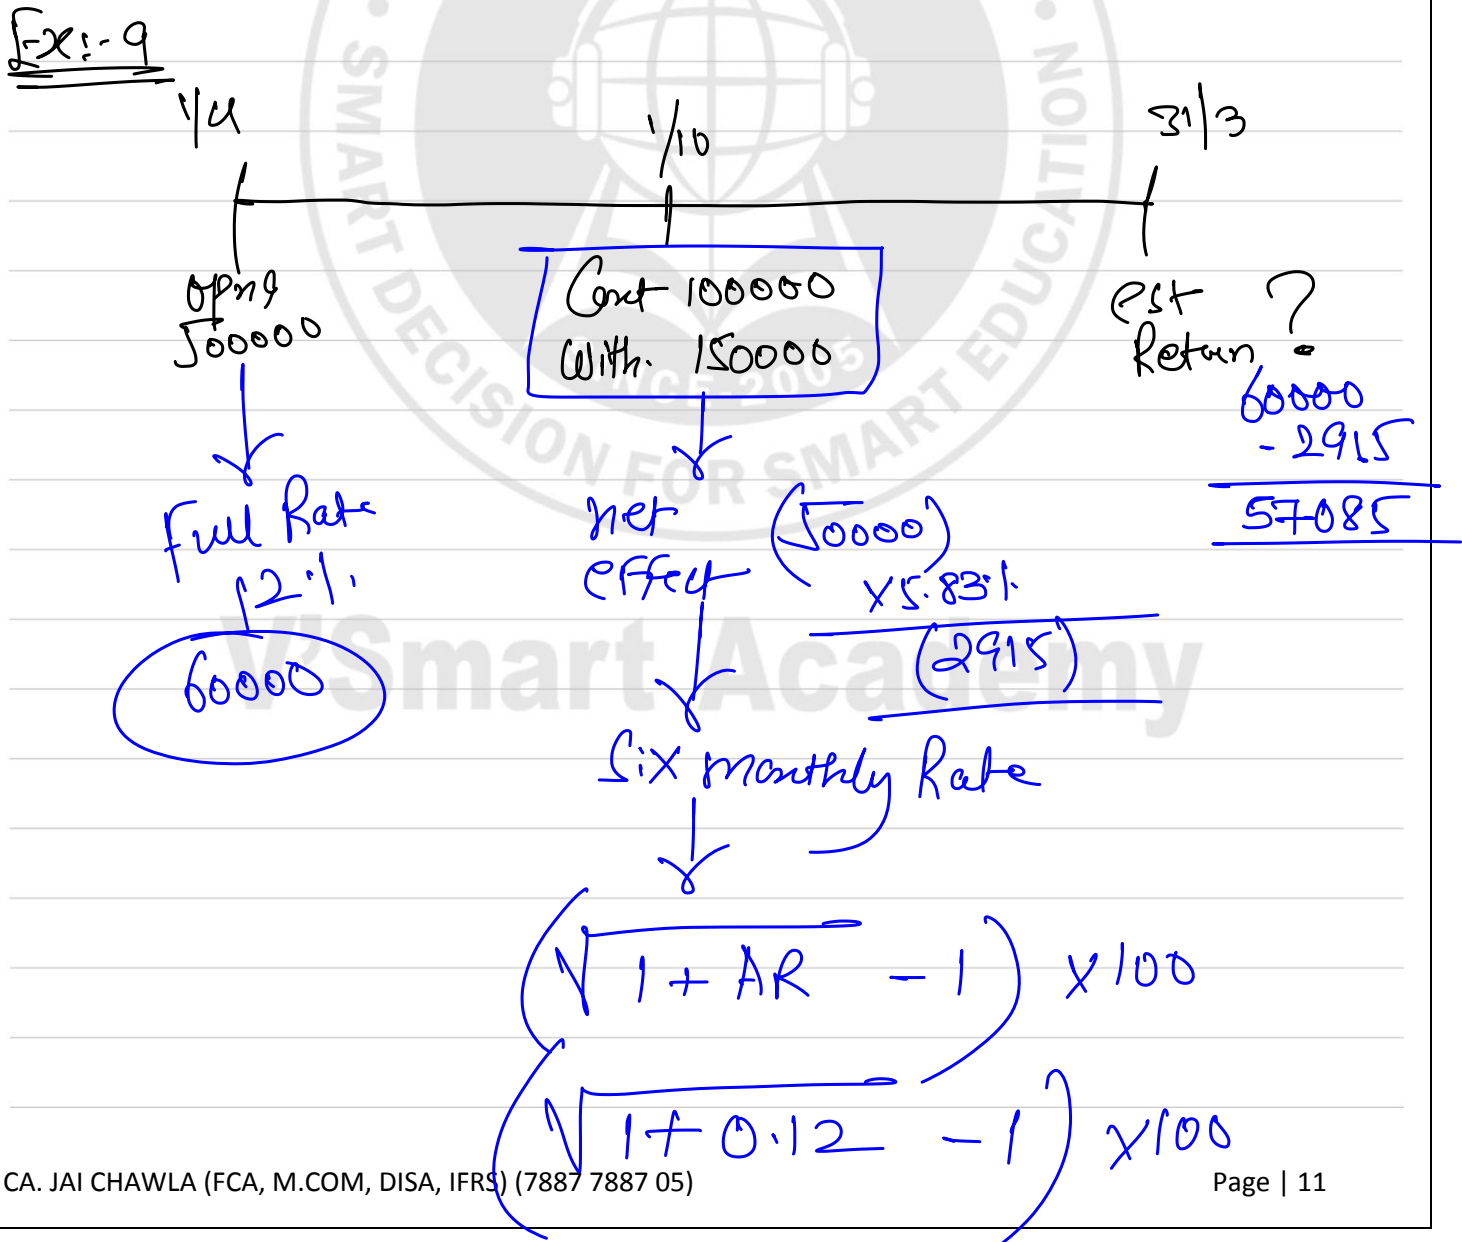 Ex:- 9
1/4
1/10
31/3
opng
500000
Cont 100000
With. 150000
est
Return ?
60000
- 2915
57085
Full Rate
12%
60000
net
effect
(50000)
x5.83%
(2915)
Six monthly Rate
(√1 + AR - 1) x100
(√1 + 0.12 - 1) x100
SMART DECISION FOR SMART EDUCATION
SINCE 2005
V'Smart Academy
CA. JAI CHAWLA (FCA, M.COM, DISA, IFRS) (7887 7887 05)
Page | 11